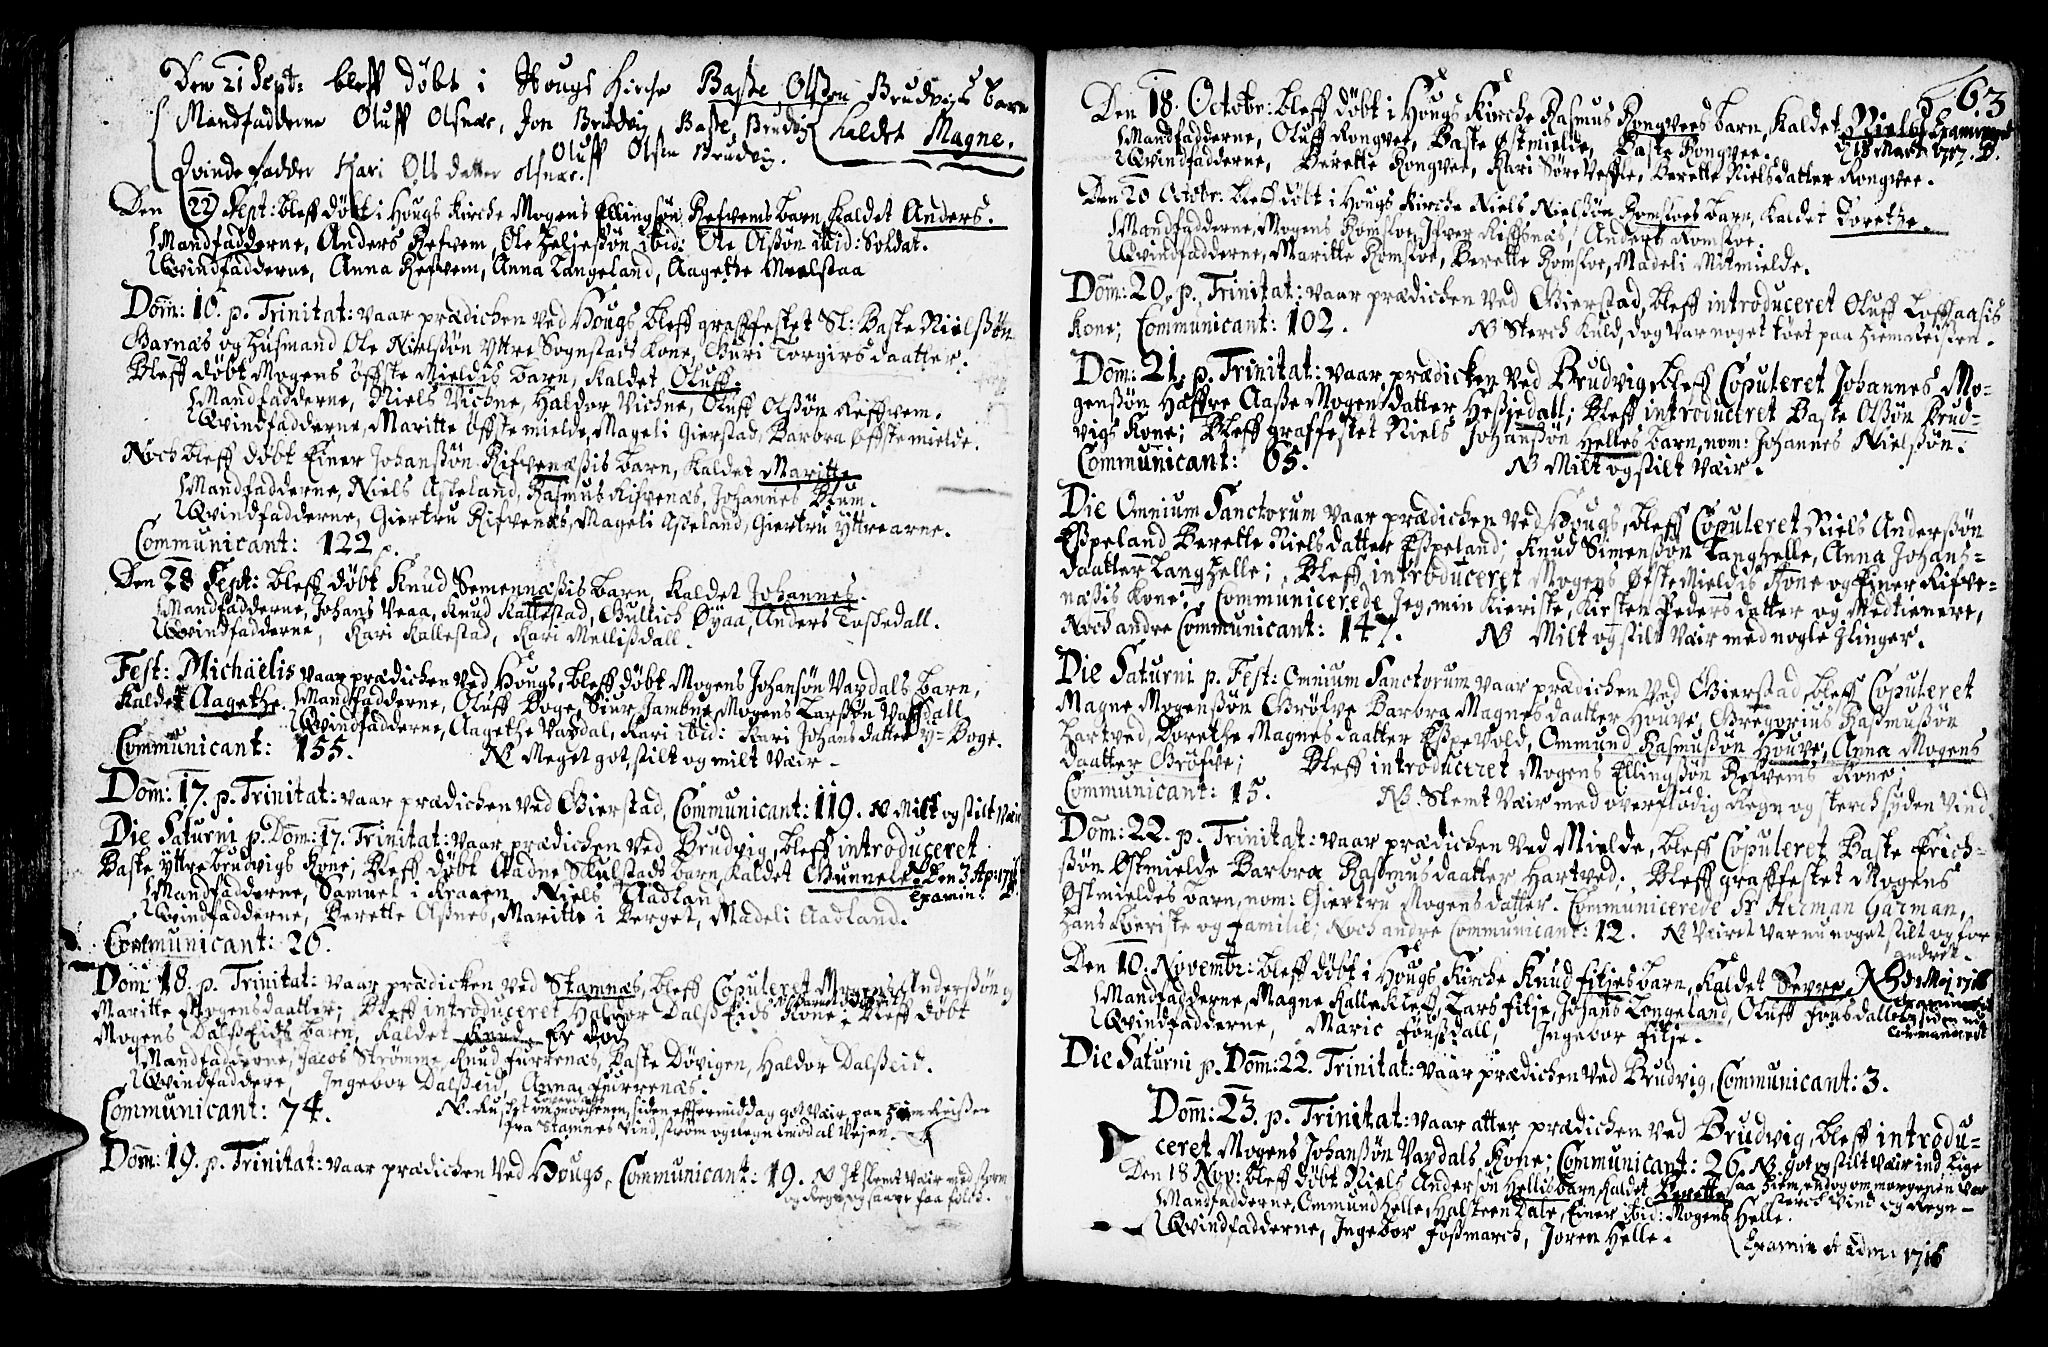 Den 21 Sept: bleff döbt i Hougs Kirche Baste Olssen Brudvigs barn
Mandfadderne Oluff Olsnæs, Jon Brudvig Baste Brudvig kaldet Magne.
Oluff Olsen Brudvig.
Qvindefadder Kari Olls datter olsnæs.
Den 22 Sept: bleff döbt i Hougs Kirche Mogens Ellingsøn Refvems barn, kaldet Anders.
Mandfadderne, Anders Refvem, Ole Heljessön ibid: Ole Olssön ibid: Soldat.
Qvindfadderne, Anna Refvem, Anna Langeland, Aagethe Mielstaa
Dom: 16. p. Trinitat: vaar prædichen ved Hougs, bleff graffestet Sl: Baste Nielssøn
Garnæs og Husmand Ole Nielssøn Yttre Sognstads kone, Guri Torgirs daatter.
Bleff döbt Mogens öffste Mieldis barn, kaldet Oluff.
Mandfadderne, Niels Vichne, Haldor Vichne, Oluff Olssøn Reffvem.
Qvindfadderne, Maritte öffste mielde, Mageli Gierstad, Barbra öffste mielde.
Noch bleff döbt Einer Johanssøn Rifvenæssis barn, kaldet Maritte
Mandfadderne, Niels Asseland, Rasmus Rifvenæs, Johannes Blum.
Qvindfadderne, Giertru Rifvenæs, Mageli Asseland, Giertru yttrearne.
Communicant: 122.
Den 28 Sept: bleff döbt Knud Semennæssis barn, kaldet Johannes.
Mandfadderne, Johans Veaa, Knud Kallestad, Gullich Øyaa, Anders Toskedall.
Qvindfadderne, Kari Kallestad, Kari Mellissdall.
Fest: Michaelis vaar prædichen ved Hougs, bleff döbt Mogens Johansøn Vaxdals barn,
kaldet Aagethe. Mandfadderne, Oluff Boge, Siur Jambne, Mogens Larssøn Vaxdall
Qvindfadderne, Aagethe Vaxdal, Kari ibid: Kari Johansdatter y= Boge.
Communicant: 155. NB Meget got, stilt og milt Vær
Dom: 17. p. Trinitat: vaar prædichen ved Gierstad, Communicant: 119. NB Milt og stilt Vær
Die Saturni p. Dom: 17. Trinitat: vaar prædichen ved Brudvig, bleff introduceret
Baste Yttrebrudvigs Kone; bleff döbt Aadne Skulstads barn, kaldet Gunnele. Den 3 Ap: 1716
Mandfadderne, Samuel i Kraaen, Niels Aadland Examin:
Qvindfadderne, Berette Assnes, Maritte i Berget, Madeli Aadland.
Communicant: 26.
Dom: 18. p. Trinitat: vaar prædicken ved Stamnæs, bleff Copuleret Mogens Anderssøn
Maritte Mogensdaatter; bleff introduceret Haldor Dalss Eids Kone; bleff döbt
Mogens Dalss Eids barn, kaldet Knud. Er död
Mandfadderne, Jacob Strømme, Knud Furrenæs, Baste Dövigen, Haldor Dalsseid.
Qvindfaddere, Ingebor Dalsseid, Anna Furrenæs.
Communicant: 74. NB. om morchenen, siden effter middag got Vær, paa Hiem Reissen
fra Stamnes Vind, strøm og Regn imod al Vejen.
Dom: 19. p. Trinitat: vaar prædichen ved Hougs, Communicant: 19. NB It slemt Vær med storm
og Regn,
63
Den 18. Octobr: bleff döbt i Hougs Kirche Rasmus Rongvees barn, kaldet Niels Examineret
Mandfadderne, Oluff Rongvee, Baste Østmielde, Baste Rongvee. 18 Mart: 1717.
Qvindfadderne, Berette Rongvee, Kari Søreveffle, Berette Nielsdatter Rongvee.
Den 20 Octobr: bleff döbt i Hougs Kirche Niels Nielssøn Romsloes barn, kaldet Dorethe.
Mandfadderne, Mogens Romsloe, Ifver Reffsnæs, Anders Romsloe.
Qvindfadderne, Maritte Romsloe, Berette Romsloe, Madeli Mitmielde.
Dom: 20. p. Trinitat: vaar prædichen ved Gierstad, bleff introduceret Oluff Lofftaasis
Kone; Communicant: 102. NB Sterch Kuld, dog var noget töet paa Hiemreissen.
Dom: 21. p. Trinitat: vaar prædicken ved Brudvig, bleff Copuleret Johannes Mo-
genssøn Haffre Aasse Mogensdatter Hessiedall; bleff introduceret Baste Olssøn Brud-
vigs Kone; Bleff graffestet Niels Johanssøn Helles barn, nom: Johannes Nielssøn.
Communicant: 65. NB Milt og stilt Vær.
Die Omnium Sanctorum vaar prædichen ved Hougs, bleff Copuleret Niels Anderssøn
Esspeland Berette Nielsdatter Esspeland; Knud Simenssøn Tanghelle, Anna Johans-
daatter Langhelle; Bleff introduceret Mogens Øfste Mieldis Kone og Einer Rifve-
næssis Kone; Communicerede Jeg, min Kieriste, Kirsten Peders datter og Medtienere,
Noch andre Communicant: 147. NB Milt og stilt Vær med nogle Ilinger.
Die Saturni p. Fest: Omnium Sanctorum vaar prædichen ved Gierstad, bleff Copuleret
Magne Mogenssøn Grölve Barbra Magnesdaatter Houve, Gregorius Rasmussøn
Hartved, Dorethe Magnesdaatter Espevold, Ommund Rasmussøn Houve, Anna Mogens
daatter Gröfve; Bleff introduceret Mogens Ellingssøn Refvems Kone;
Communicant: 15. NB. Slemt Vær med overflödig Regn og sterch synden Vind
Dom: 22. p. Trinitat: vaar prædichen ved Mielde, bleff Copuleret Baste Erich-
ssøn Østmielde Barbra Rasmusdaatter Hartved; Bleff graffestet Mogens
Østmieldes barn, nom: Giertru Mogensdatter. Communicerede Sr Herman Garman,
hans Kieriste og familie; Noch andre Communicant: 12. NB Væiret var nu noget stilt og for
andret.
Den 10. Novembr: bleff döbt i Hougs Kirche Knud Filjes barn, kaldet Sevre.
Mandfadderne, Magne Kallekleff, Lars Filje, Johans Langeland, Oluff Fonsdall
Qvindfadderne, Maric Fonssdall, Ingebor Filje.
Die Saturni p. Dom: 22. Trinitat: vaar prædichen ved Brudvig, Communicant: 3.
Dom: 23. p. Trinitat: vaar atter prædichen ved Brudvig, bleff introdu-
ceret Mogens Johanssøn Vaxdals Kone; Communicant: 26. NB. got og stilt Vær ind, lige
Den 18 Nov: bleff döbt Niels Andersøn Hellis barn, kaldet Berette saa hiem, endog om morgenen var
Mandfadderne, Ommund Helle, Halsteen Dale, Einer ibid: Mogens Helle. sterch Vind og Regn
Qvindfadderne, Ingebor Fossmarch, Joren Helle. Examin et Adm: 1716